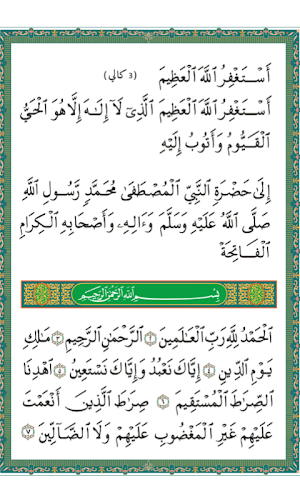 أَسْتَغْفِرُ اللَّهَ الْعَظِيمَ (3 كالي)
أَسْتَغْفِرُ اللَّهَ الْعَظِيمَ الَّذِيْ لَآ إِلَـٰهَ إِلَّا هُوَ الْحَيُّ
الْقَيُّومُ وَأَتُوبُ إِلَيْهِ
إِلَىٰ حَضْرَةِ النَّبِيِّ الْمُصْطَفَىٰ مُحَمَّدٍ رَّسُولِ اللَّهِ
صَلَّى اللَّهُ عَلَيْهِ وَسَلَّمَ وَءَالِهِ وَأَصْحَابِهِ الْكِرَامِ
الْفَاتِحَةْ
بِسْمِ اللَّهِ الرَّحْمَٰنِ الرَّحِيمِ
الْحَمْدُ لِلَّهِ رَبِّ الْعَالَمِينَ ٢ الرَّحْمَٰنِ الرَّحِيمِ ٣ مَالِكِ
يَوْمِ الدِّينِ ٤ إِيَّاكَ نَعْبُدُ وَإِيَّاكَ نَسْتَعِينُ ٥ اهْدِنَا
الصِّرَاطَ الْمُسْتَقِيمَ ٦ صِرَاطَ الَّذِينَ أَنْعَمْتَ
عَلَيْهِمْ غَيْرِ الْمَغْضُوبِ عَلَيْهِمْ وَلَا الضَّآلِّينَ ٧